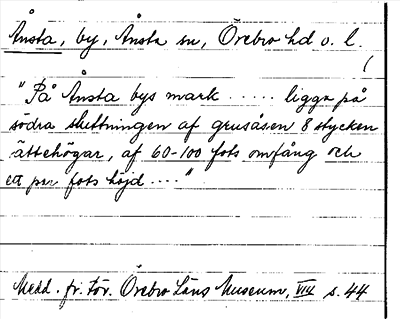 Ånsta, by, Ånsta sn, Örebro hd o. l.
(
"På Ånsta bys mark ..... ligga på
södra sluttningen af grusåsen 8 stycken
ättehögar, af 60-100 fots omfång och
ett par fots höjd ...."
Medd. fr. För. Örebro Läns Museum, VIII s. 44